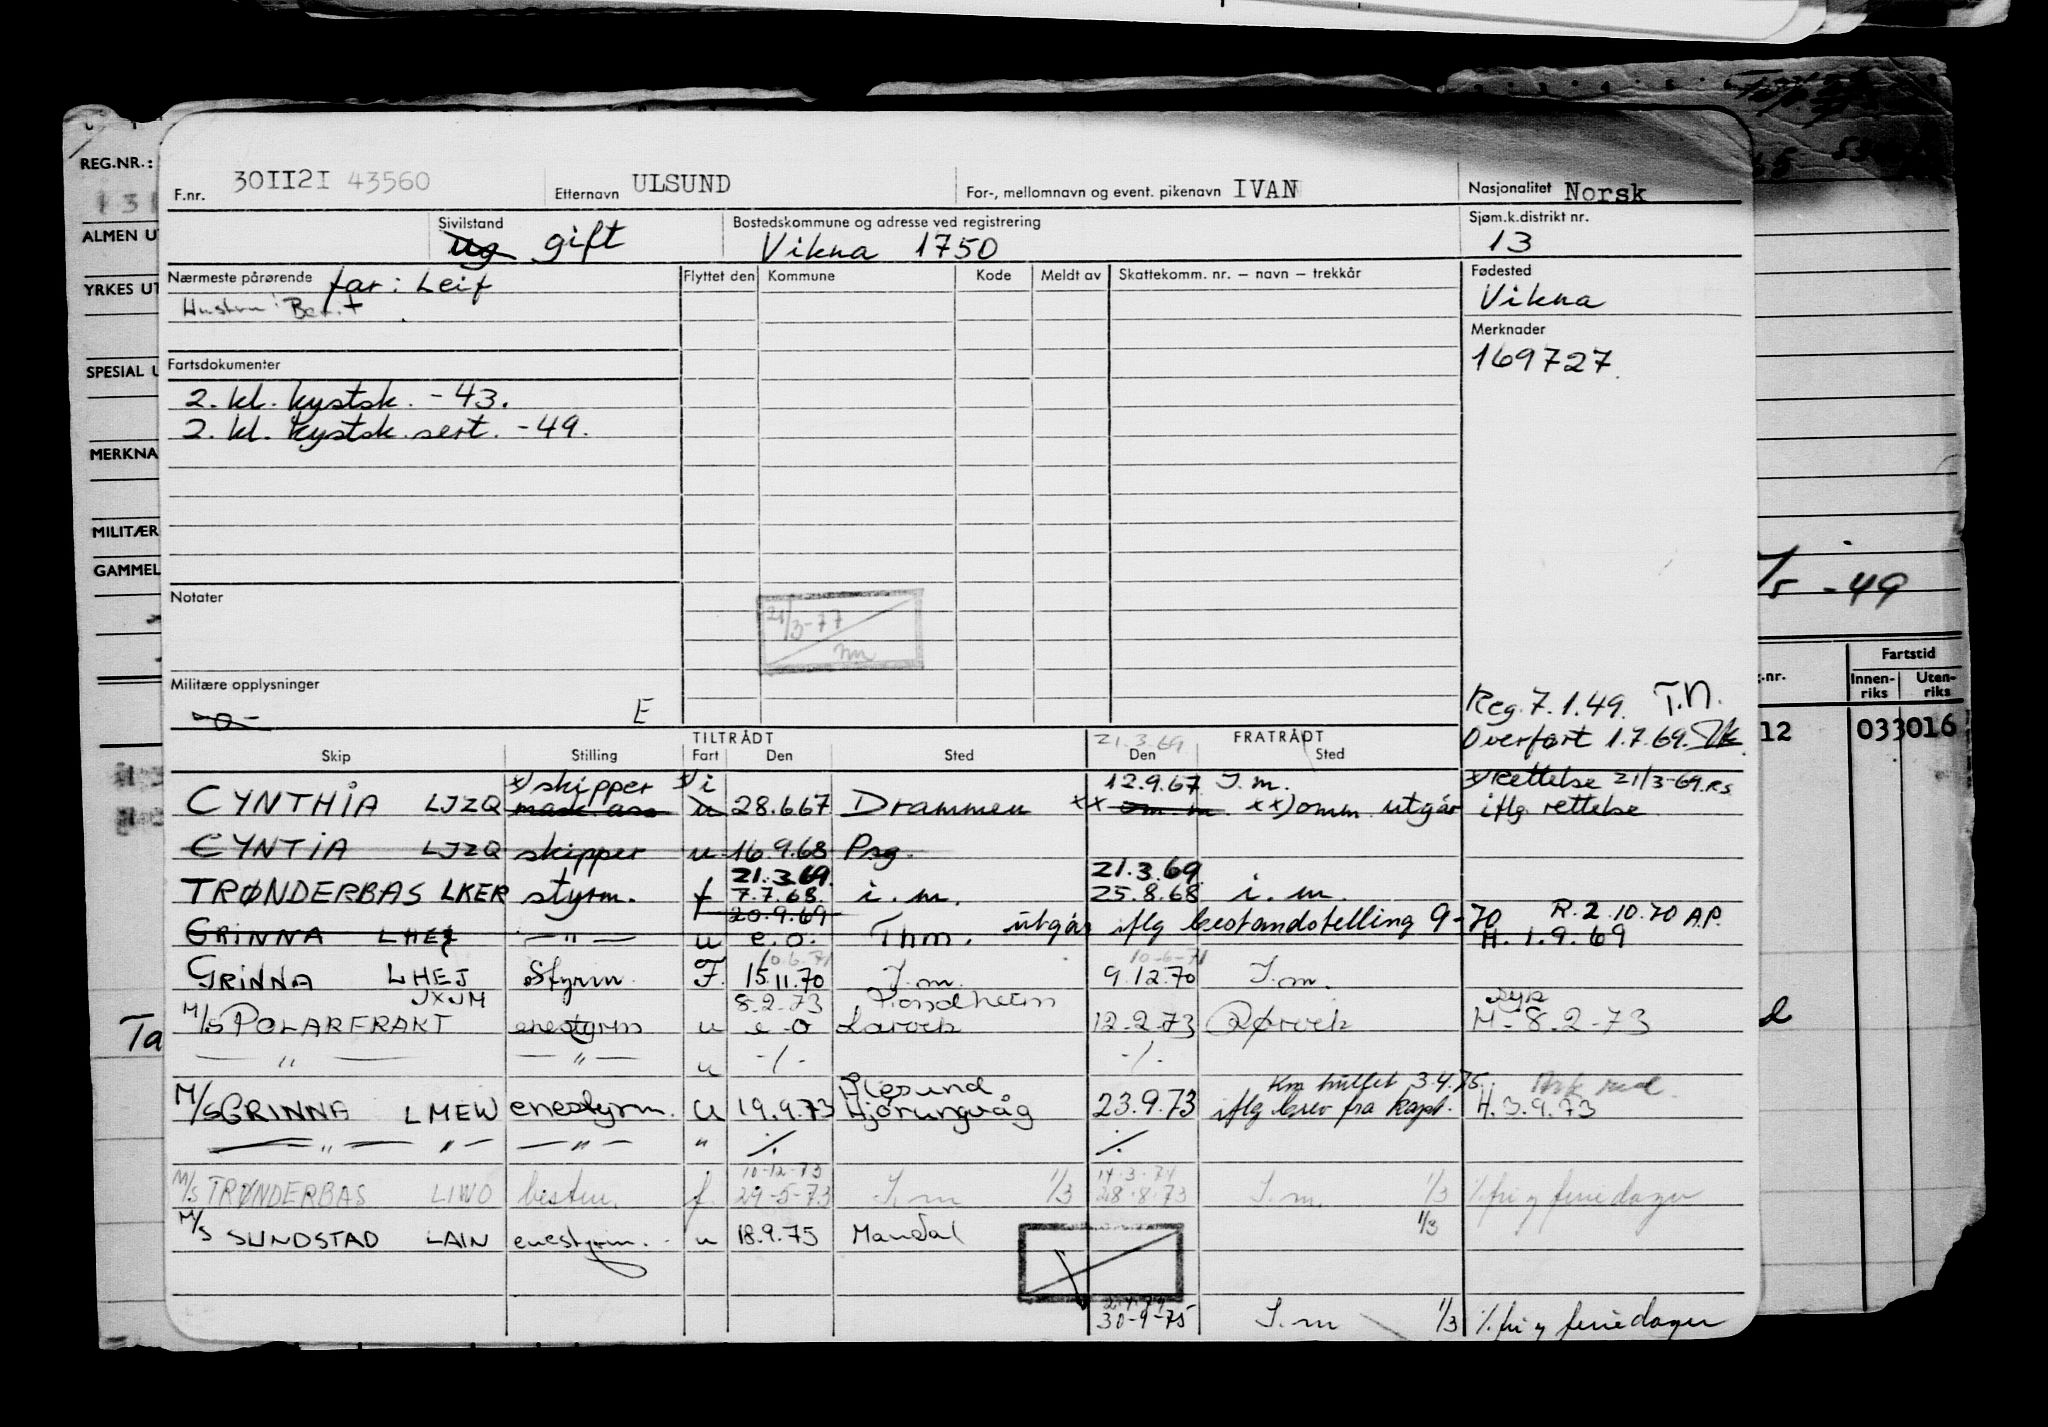 REG.NR.:
F.nr. 30II2I 43560 Etternavn ULSUND For-, mellomnavn og event. pikenavn IVAN Nasjonalitet Norsk
ALMEN U
Sivilstand ug gift Bostedskommune og adresse ved registrering Vikna 1750 Sjøm.k.distrikt nr. 13
YRKES UT
Nærmeste pårørende far: Leif Flyttet den Kommune Kode Meldt av Skattekomm. nr. – navn – trekkår Fødested
Hustru: Berit Vikna
Merknader
SPESIAL U
Fartsdokumenter 169727
2. kl. kystsk. -43.
2. kl. kystsk. sert. -49.
MERKNA
MILITÆR
GAMMEL
/5 -49
Notater
21/3-77
Fartstid
nr. Innenriks Utenriks
12 033016
Militære opplysninger
-o- E
Reg. 7.1.49. T.N.
Overført 1.7.69.
TILTRÅDT 21.3.69 FRATRÅDT
Skip Stilling Fart Den Sted Den Sted
x) skipper x) i 12.9.67 I.m. x) Rettelse 21/3-69 R.S.
CYNTHIA LJZQ mask. ass u 28.6.67 Drammen xx om.m. xx) omm. utgår iflg rettelse
CYNTIA LJZQ skipper u 16.9.68 Psg.
21.3.69 21.3.69
TRØNDERBAS LKER styrm. f 7.7.68 i.m. 25.8.68 i.m.
20.9.69 utgår iflg bestandstelling 9-70 R. 2.10.70 A.P.
GRINNA LHEJ -"- u e.o. Thm. H. 1.9.69
10.6.71 10-6-71
GRINNA LHEJ Styrm. F. 15.11.70 I.m. 9.12.70 I.m.
JXJM 8.2.73 Trondheim
M/S POLARFRAKT enestyrm u e-o Larvik 12-2-73 Rørvik M-8.2-73
-"- -"- u -/- -/-
Ålesund Kra hullet 3.4.75.
M/S GRINNA LMEW enestyrm. u 19.9.73 Hjørungvåg 23.9.73 iflg brev fra Kapt. H.3.9.73
-"- "- -"- " ./. ./.
10-12-73 14.3.74
M/S TRØNDERBAS LIWO bestm. f. 29-5-73 I.m 1/3 28.8.73 I.m. 1/3 %fri og feriedager
1/3
M/S SUNDSTAD LAIN enestyrm. u 18.9.75 Mandal
30-9-75 I.m 1/3 %fri og feriedager
Ta